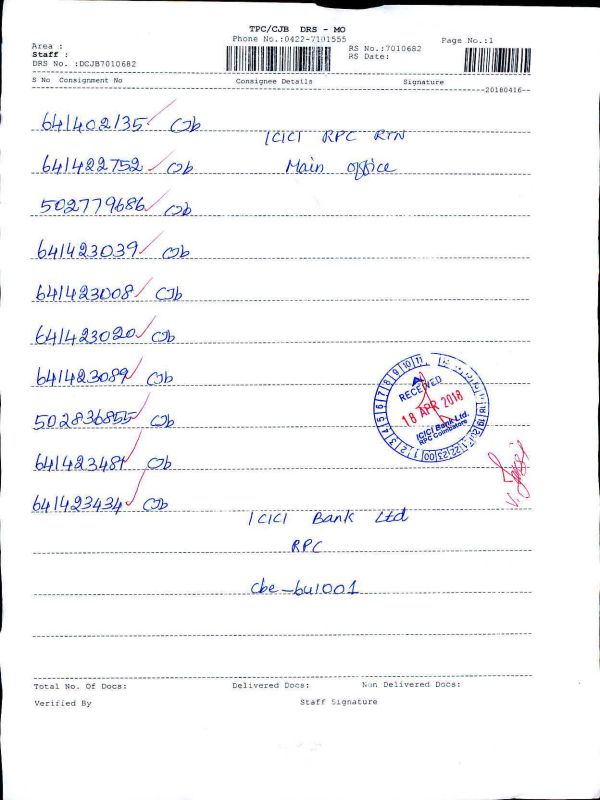 TPC/CJB DRS - MO
Phone No.:0422-7101555
Page No.:1
Area :
RS No.:7010682
Staff :
RS Date:
DRS No. :DCJB7010682
S No Consignment No Consignee Details Signature
20180416
641402135 CJb
ICICI RPC RTN
641422752 CJb
Main office
502779686 CJb
641423039 CJb
641423008 CJb
641423020 CJb
641423089 CJb
RECEIVED
18 APR 2018
ICICI Bank Ltd.
RPC Coimbatore
502836855 CJb
641423481 CJb
641423434 CJb
ICICI Bank Ltd
RPC
Cbe-641001
Total No. Of Docs: Delivered Docs: Non Delivered Docs:
Verified By Staff Signature